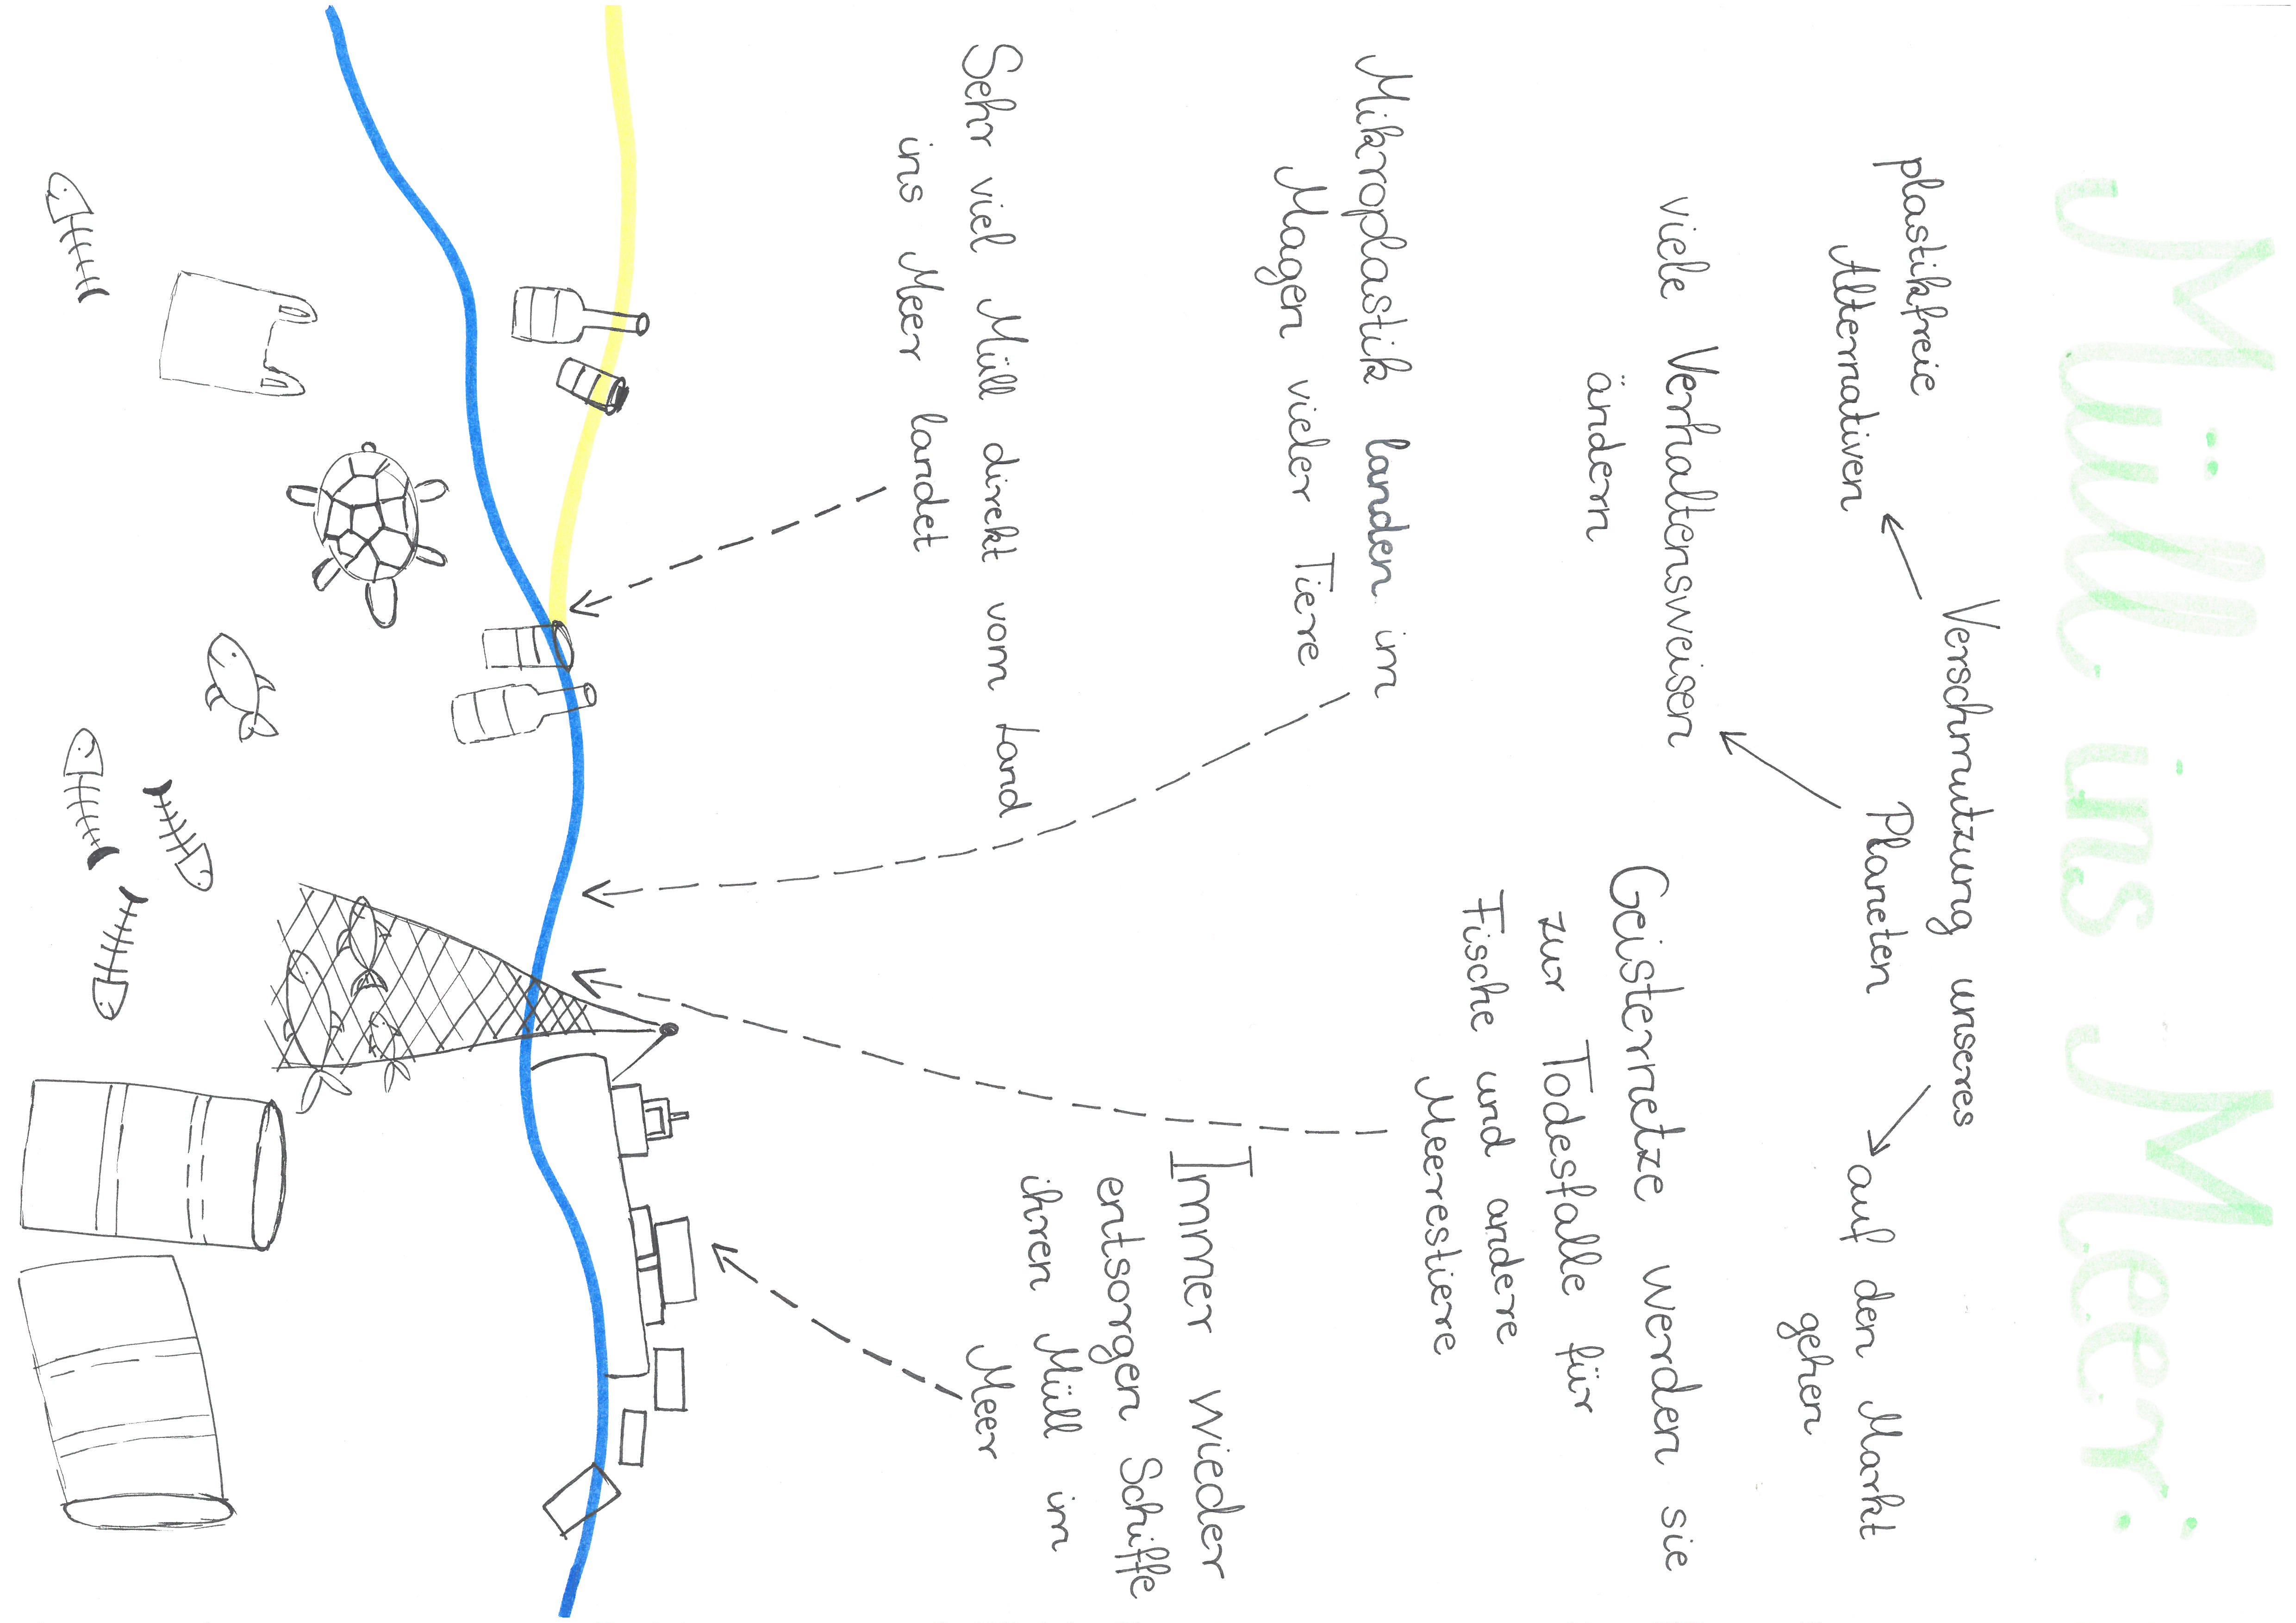 Müll ins Meer:
Verschmutzung unseres
Planeten
plastikfreie
Alternativen
viele Verhaltensweisen
ändern
auf den Markt
gehen
Geisternetze werden sie
zur Todesfalle für
Fische und andere
Meerestiere
Mikroplastik landen im
Magen vieler Tiere
Immer wieder
entsorgen Schiffe
ihren Müll im
Meer
Sehr viel Müll direkt vom Land
ins Meer landet